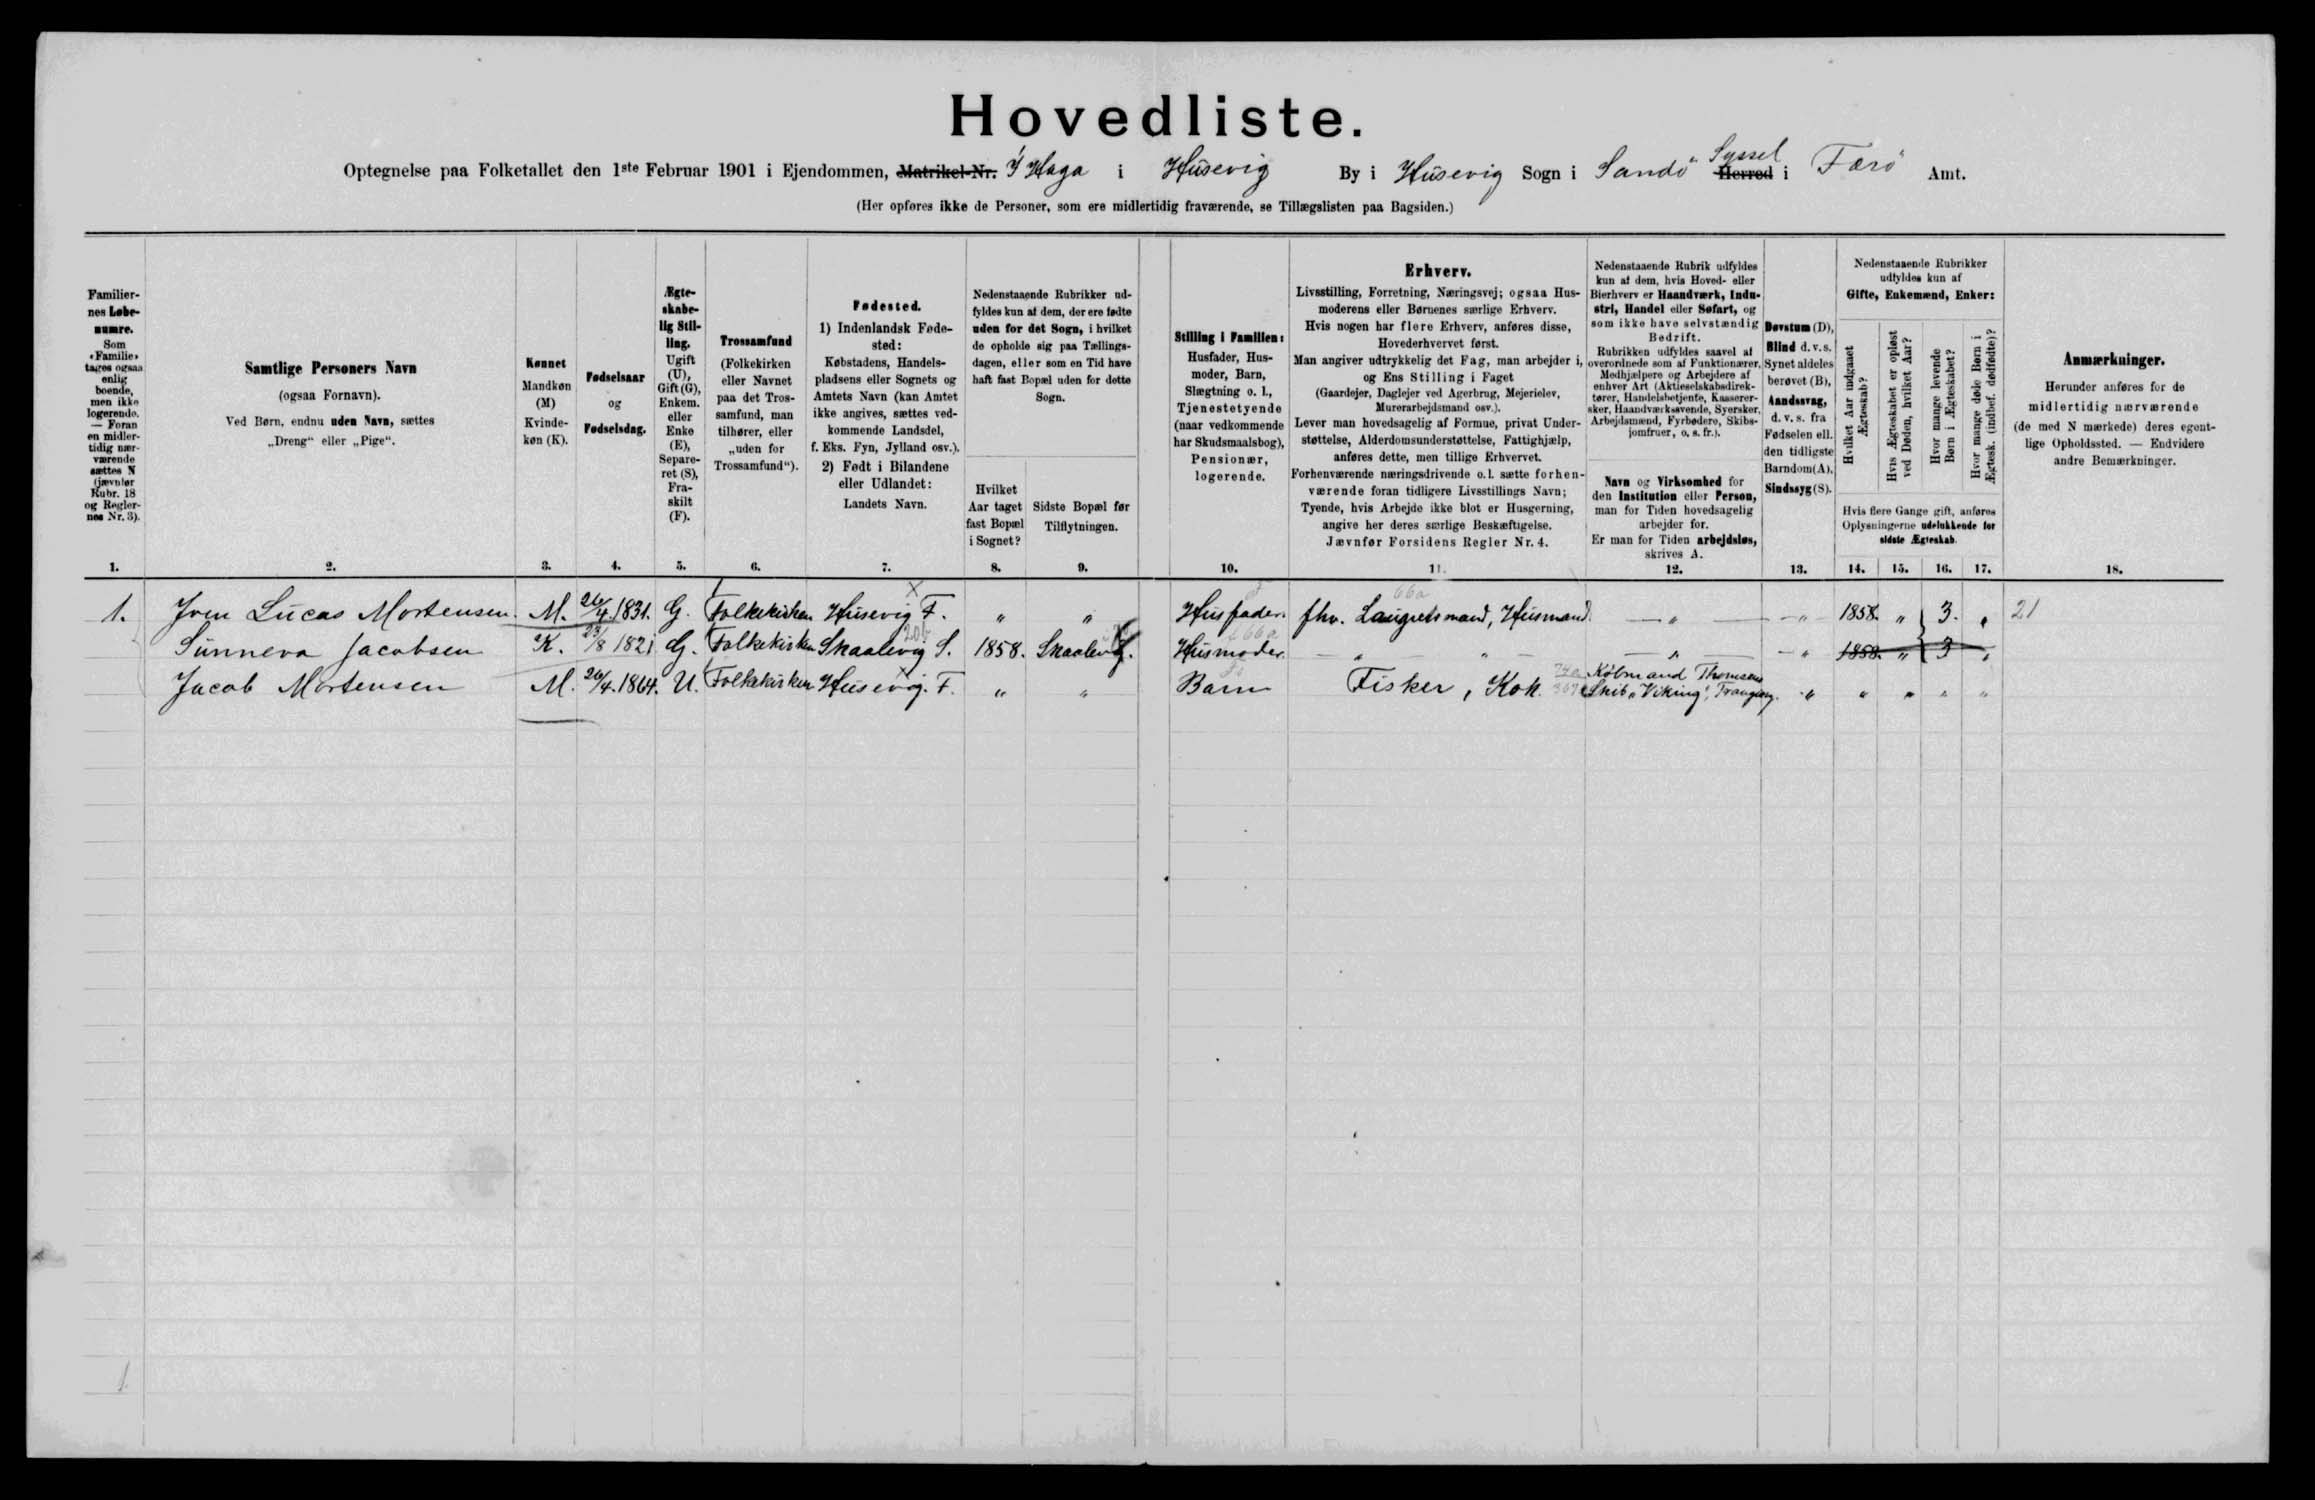 Hovedliste.
Optegnelse paa Folketallet den 1ste Februar 1901 i Ejendommen, Matrikel-Nr. Í Haga i Húsevig By i Húsevig Sogn i Sandö Herred Syssel i Færö Amt.
(Her opføres ikke de Personer, som ere midlertidig fraværende, se Tillægslisten paa Bagsiden.)
Familier-
nes Løbe-
numre.
Som
«Familie»
tages ogsaa
enlig
boende,
men ikke
logerende.
— Foran
en midler-
tidig nær-
værende
sættes N
(jævnfør
Rubr. 18
og Regler-
nes Nr. 3).
1.
Samtlige Personers Navn
(ogsaa Fornavn).
Ved Børn, endnu uden Navn, sættes
„Dreng“ eller „Pige“.
2.
Kønnet
Mandkøn
(M)
Kvinde-
køn (K).
3.
Fødselsaar
og
Fødselsdag.
4.
Ægte-
skabe-
lig Stil-
ling.
Ugift
(U),
Gift (G),
Enkem.
eller
Enke
(E),
Separe-
ret (S),
Fra-
skilt
(F).
5.
Trossamfund
(Folkekirken
eller Navnet
paa det Tros-
samfund, man
tilhører, eller
„uden for
Trossamfund“).
6.
Fødested.
1) Indenlandsk Føde-
sted:
Købstadens, Handels-
pladsens eller Sognets og
Amtets Navn (kan Amtet
ikke angives, sættes ved-
kommende Landsdel,
f. Eks. Fyn, Jylland osv.).
2) Født i Bilandene
eller Udlandet:
Landets Navn.
7.
Nedenstaaende Rubrikker ud-
fyldes kun af dem, der ere fødte
uden for det Sogn, i hvilket
de opholde sig paa Tællings-
dagen, eller som en Tid have
haft fast Bopæl uden for dette
Sogn.
Hvilket
Aar taget
fast Bopæl
i Sognet?
8.
Sidste Bopæl før
Tilflytningen.
9.
Stilling i Familien:
Husfader, Hus-
moder, Barn,
Slægtning o. l.,
Tjenestetyende
(naar vedkommende
har Skudsmaalsbog),
Pensionær,
logerende.
10.
Erhverv.
Livsstilling, Forretning, Næringsvej; ogsaa Hus-
moderens eller Børnenes særlige Erhverv.
Hvis nogen har flere Erhverv, anføres disse,
Hovederhvervet først.
Man angiver udtrykkelig det Fag, man arbejder i,
og Ens Stilling i Faget
(Gaardejer, Daglejer ved Agerbrug, Mejerielev,
Murerarbejdsmand osv.).
Lever man hovedsagelig af Formue, privat Under-
støttelse, Alderdomsunderstøttelse, Fattighjælp,
anføres dette, men tillige Erhvervet.
Forhenværende næringsdrivende o. l. sætte forhen-
værende foran tidligere Livsstillings Navn;
Tyende, hvis Arbejde ikke blot er Husgerning,
angive her deres særlige Beskæftigelse.
Jævnfør Forsidens Regler Nr. 4.
11.
Nedenstaaende Rubrik udfyldes
kun af dem, hvis Hoved- eller
Bierhverv er Haandværk, Indu-
stri, Handel eller Søfart, og
som ikke have selvstændig
Bedrift.
Rubrikken udfyldes saavel af
overordnede som af Funktionærer,
Medhjælpere og Arbejdere af
enhver Art (Aktieselskabsdirek-
tører, Handelsbetjente, Kasserer-
sker, Haandværkssvende, Syersker,
Arbejdsmænd, Fyrbødere, Skibs-
jomfruer, o. s. fr.).
Navn og Virksomhed for
den Institution eller Person,
man for Tiden hovedsagelig
arbejder for.
Er man for Tiden arbejdsløs,
skrives A.
12.
Døvstum (D),
Blind d. v. s.
Synet aldeles
berøvet (B),
Aandssvag,
d. v. s. fra
Fødselen ell.
den tidligste
Barndom (A),
Sindssyg (S).
13.
Nedenstaaende Rubrikker
udfyldes kun af
Gifte, Enkemænd, Enker:
Hvilket Aar indgaaet
Ægteskab?
Hvis Ægteskabet er opløst
ved Døden, hvilket Aar?
Hvor mange levende
Børn i Ægteskabet?
Hvor mange døde Børn i
Ægtesk. (indbef. dødfødte)?
Hvis flere Gange gift, anføres
Oplysningerne udelukkende for
sidste Ægteskab.
14. 15. 16. 17.
Anmærkninger.
Herunder anføres for de
midlertidig nærværende
(de med N mærkede) deres egent-
lige Opholdssted. — Endvidere
andre Bemærkninger.
18.
66a
1. Joen Lucas Mortensen. M. 26/4 1831. G. Folkekirken Húsevig F. „ „ Husfader. fhv. Laugretsmand, Húsmand. — „ — „ 1858. „ 3. „ 21
Súnneva Jacobsen K. 23/8 1821 G. Folkekirken Skaalevig S. 1858. Skaalevig. Húsmoder. „ „ „ „ 1858. „ 3 „
Jacob Mortensen M. 26/4. 1864. U. Folkekirken Húsevig. F. „ „ Barn Fisker, Kok. Købmand Thomsens
Skib „Viking“, Trangisvg. „ „ „ „ „
1